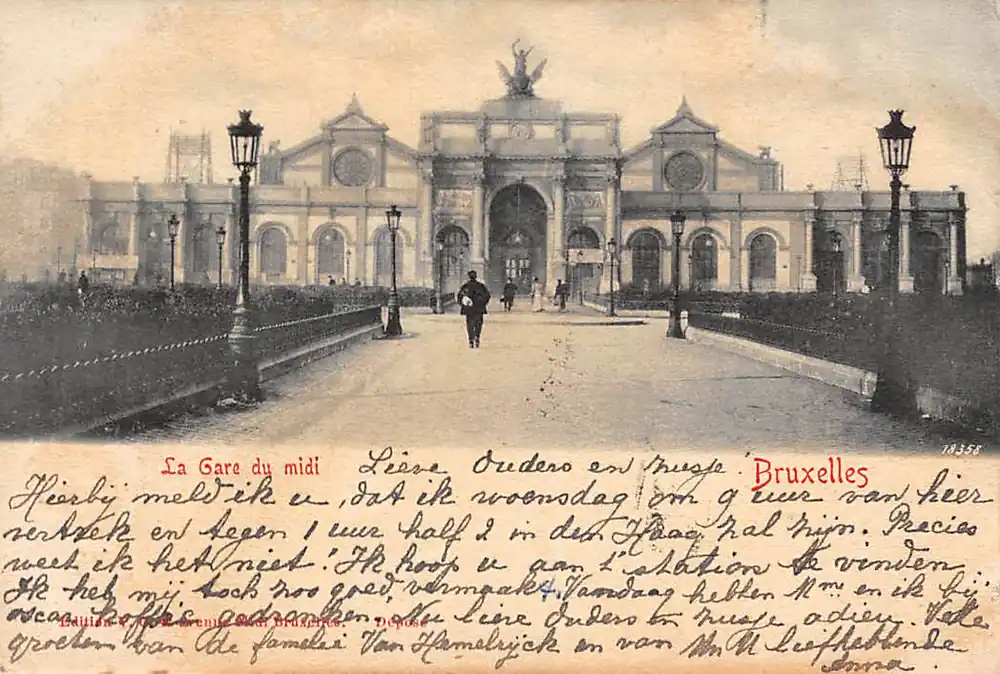 18358
La Gare du midi
Bruxelles
Lieve Ouders en zusje!
Hierbij meld ik u, dat ik woensdag om 9 uur van hier
vertrek en tegen 1 uur half 2 in den Haag zal zijn. Precies
weet ik het niet! Ik hoop u aan 't station te vinden
Ik heb mij toch zoo goed vermaakt. Vandaag hebben Mme en ik bij
oscar koffie gedronken. Nu lieve Ouders en zusje adieu. Vele
Edition Bruxelles. Déposé
groeten van de familie Van Hamelrijck en van Uw U liefhebbende
Anna.